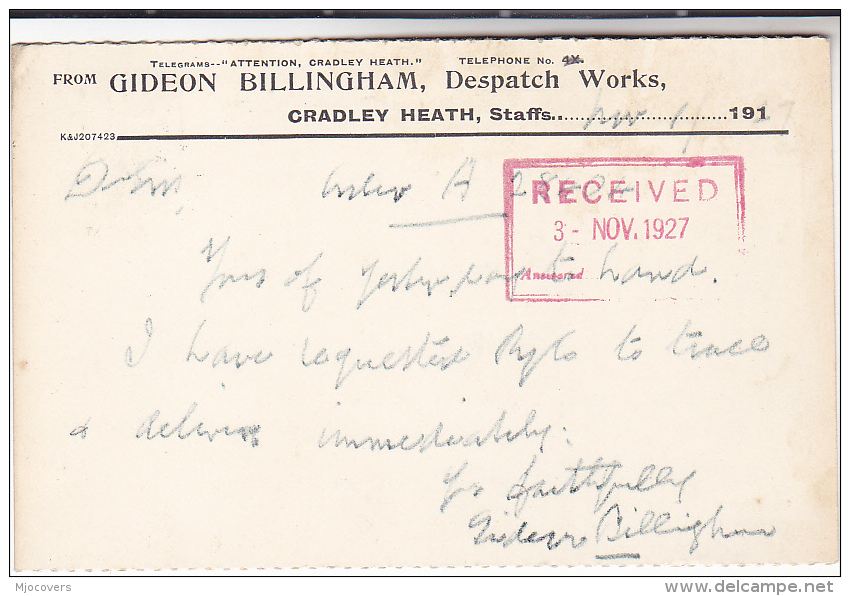 TELEGRAMS--"ATTENTION, CRADLEY HEATH." TELEPHONE No. 4X.
FROM GIDEON BILLINGHAM, Despatch Works,
CRADLEY HEATH, Staffs. Nov 1/ 1917
K&J207423
D Sirs, Order A
RECEIVED
3 - NOV. 1927
Answered
Yours of yesterday to hand.
I have requested Rylo to trace
& deliver immediately.
Yrs faithfully
Gideon Billingham
Mjocovers
delcampe.net